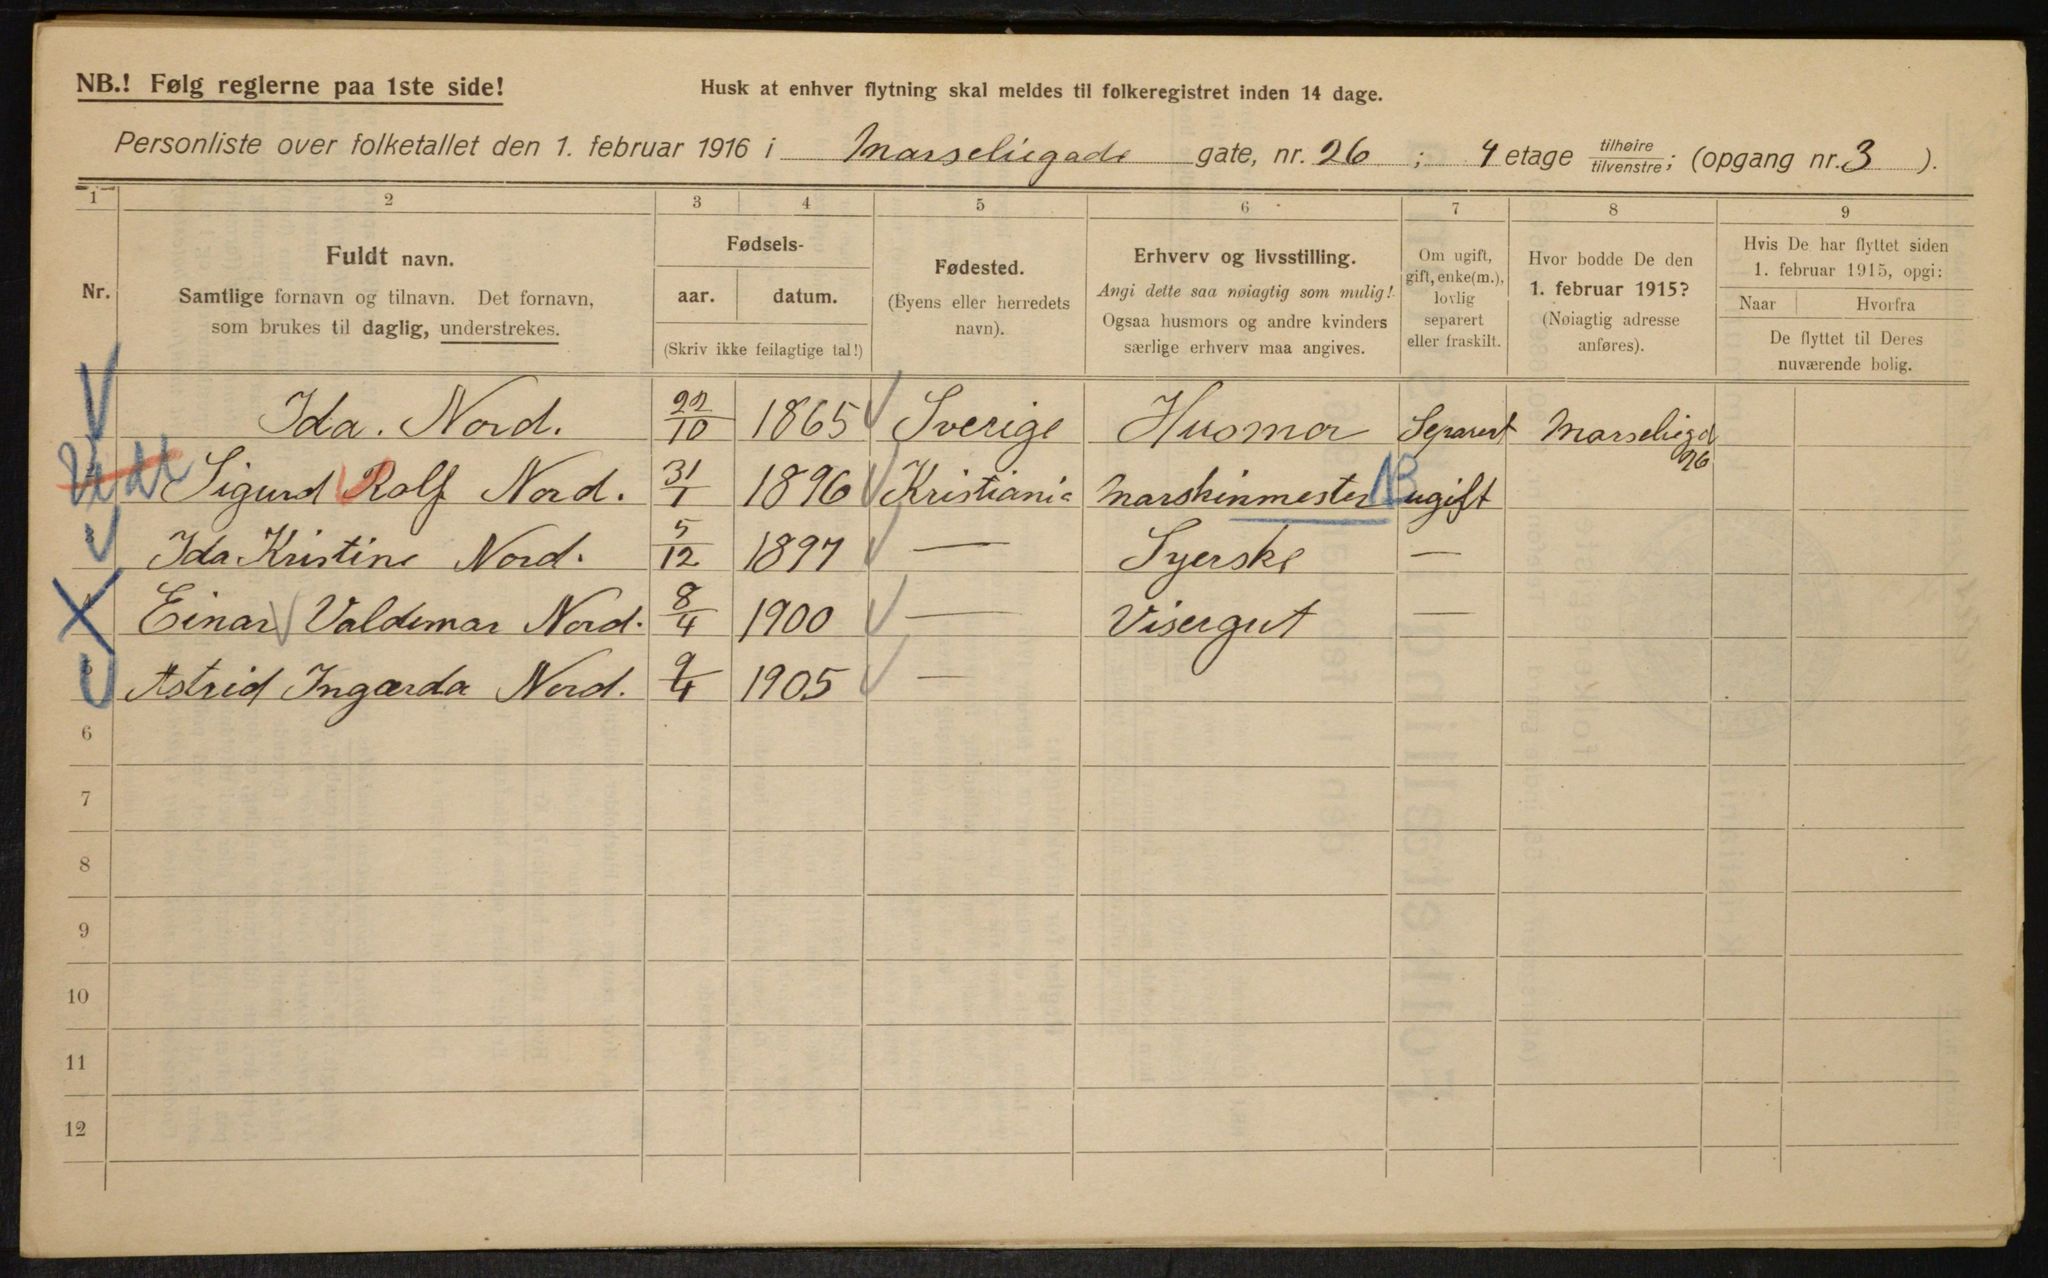 NB.! Følg reglerne paa 1ste side!
Husk at enhver flytning skal meldes til folkeregistret inden 14 dage.
Personliste over folketallet den 1. februar 1916 i Marseliegade gate, nr. 26 ; 4 etage tilhøire/tilvenstre; (opgang nr. 3 ).
1 2 3 4 5 6 7 8 9
Nr.
Fuldt navn.
Samtlige fornavn og tilnavn. Det fornavn,
som brukes til daglig, understrekes.
Fødsels-
aar. datum.
(Skriv ikke feilagtige tal!)
Fødested.
(Byens eller herredets
navn).
Erhverv og livsstilling.
Angi dette saa nøiagtig som mulig!
Ogsaa husmors og andre kvinders
særlige erhverv maa angives.
Om ugift,
gift, enke(m.),
lovlig
separert
eller fraskilt.
Hvor bodde De den
1. februar 1915?
(Nøiagtig adresse
anføres).
Hvis De har flyttet siden
1. februar 1915, opgi:
Naar Hvorfra
De flyttet til Deres
nuværende bolig.
Ida. Nord. 22/10 1865 Sverige Husmor Separert Marseliegd 26
Sigurd Rolf Nord. 31/1 1896 Kristiania Marskinmester NB ugift
3 Ida Kristine Nord. 5/12 1897 — Syerske —
4 Einar Valdemar Nord. 8/4 1900 — Visergut —
5 Astrid Ingærda Nord. 9/4 1905 —
6
7
8
9
10
11
12